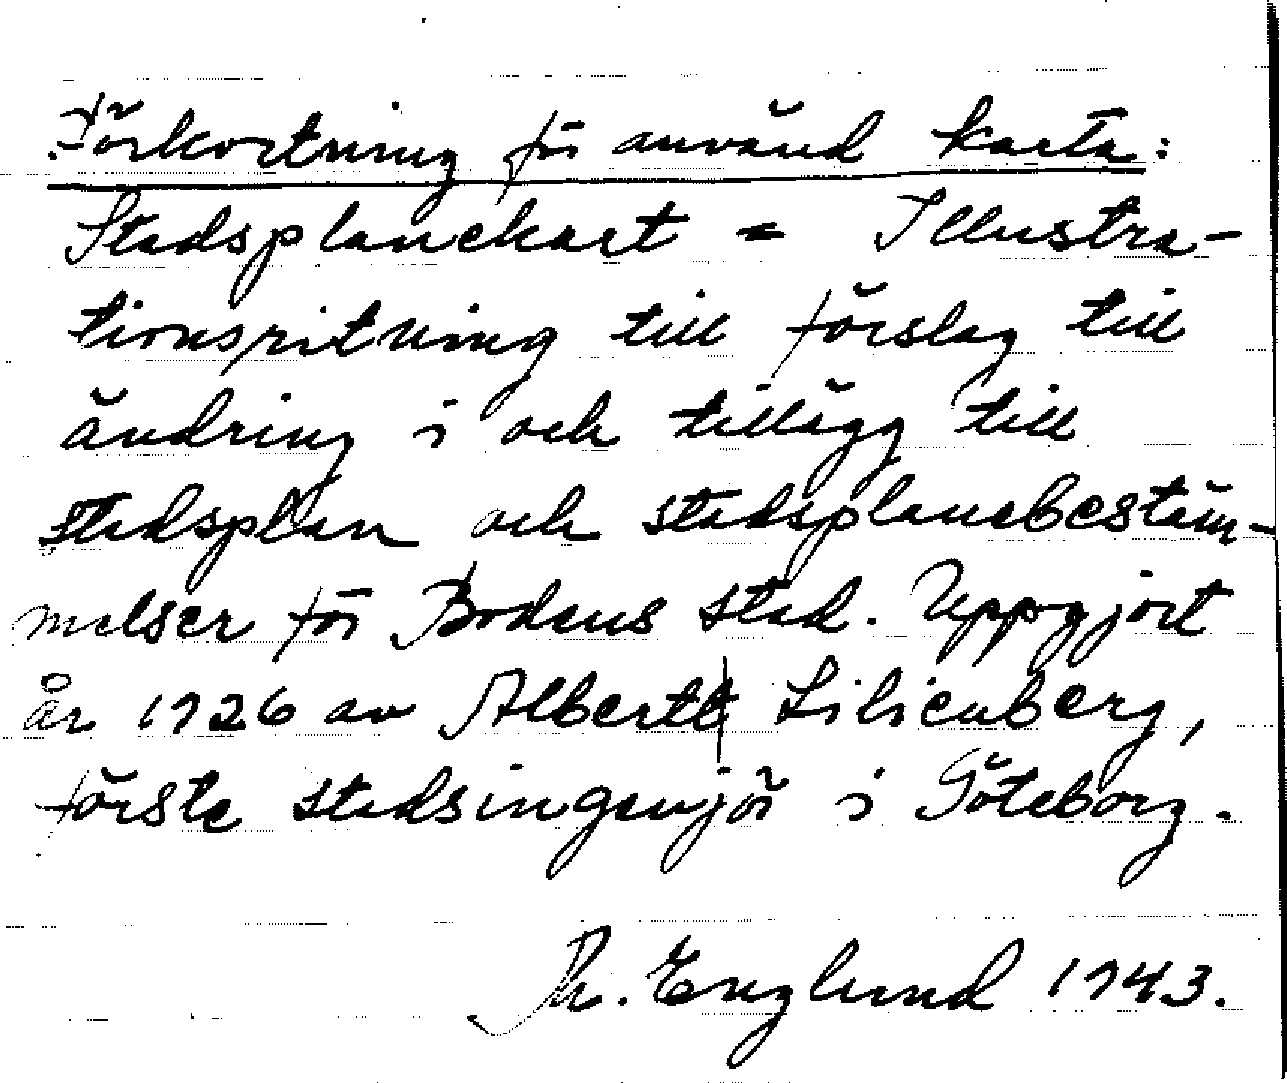 Förkortning för använd karta:
Stadsplanekart = Illustra-
tionsritning till förslag till
ändring i och tillägg till
stadsplan och stadsplanebestäm-
melser för Bodens stad. Uppgjort
år 1926 av Albert Lilienberg,
förste stadsingenjör i Göteborg.
Th. Englund 1943.